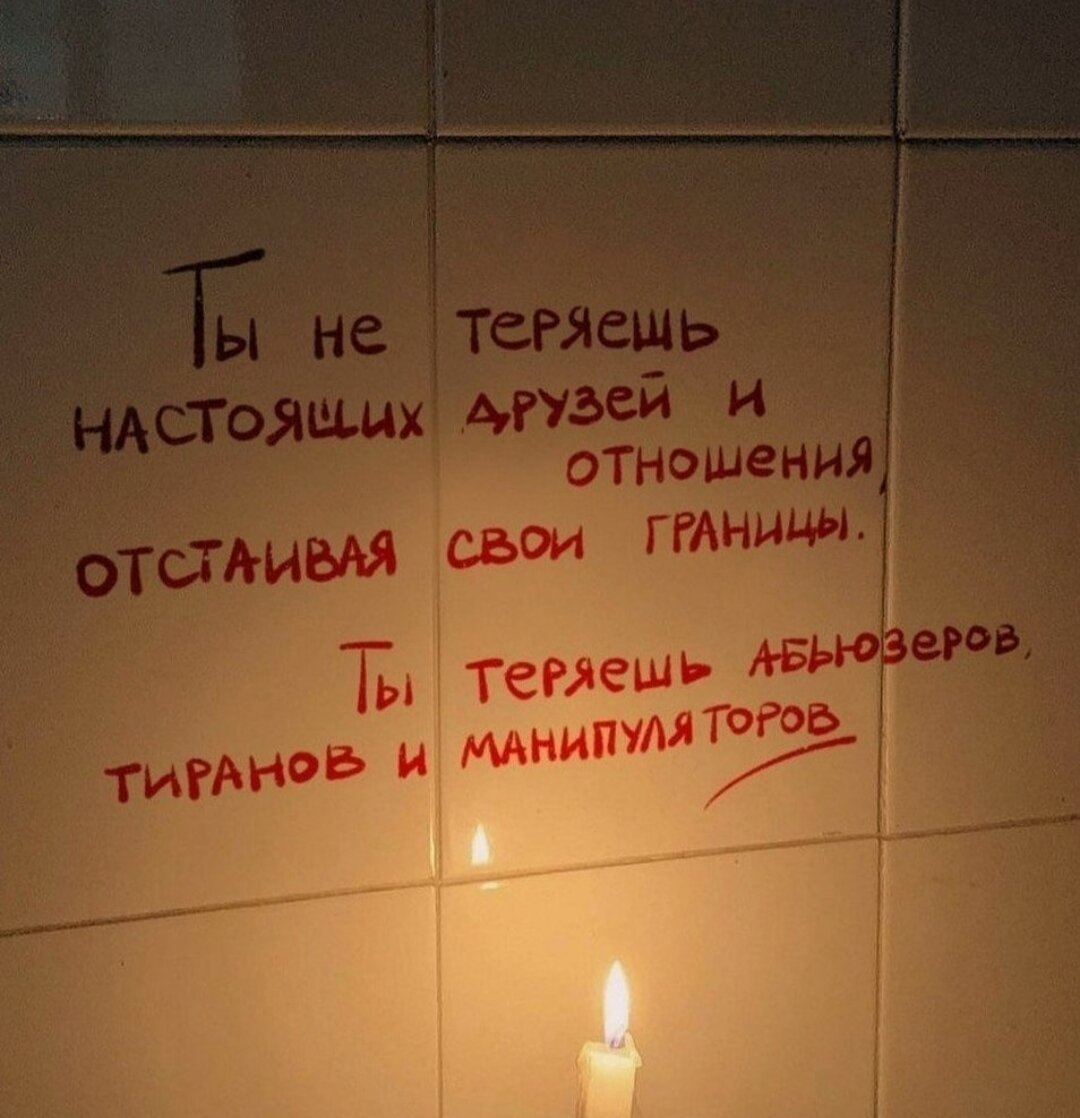 Ты не теряешь
настоящих друзей и
отношения,
отстаивая свои границы.
Ты теряешь абьюзеров,
тиранов и манипуляторов